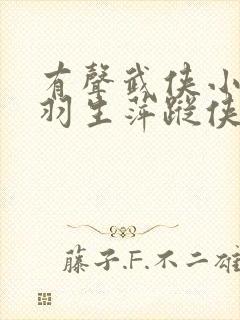 有聲武俠小
羽生萍蹤俠
藤子.F.不二雄